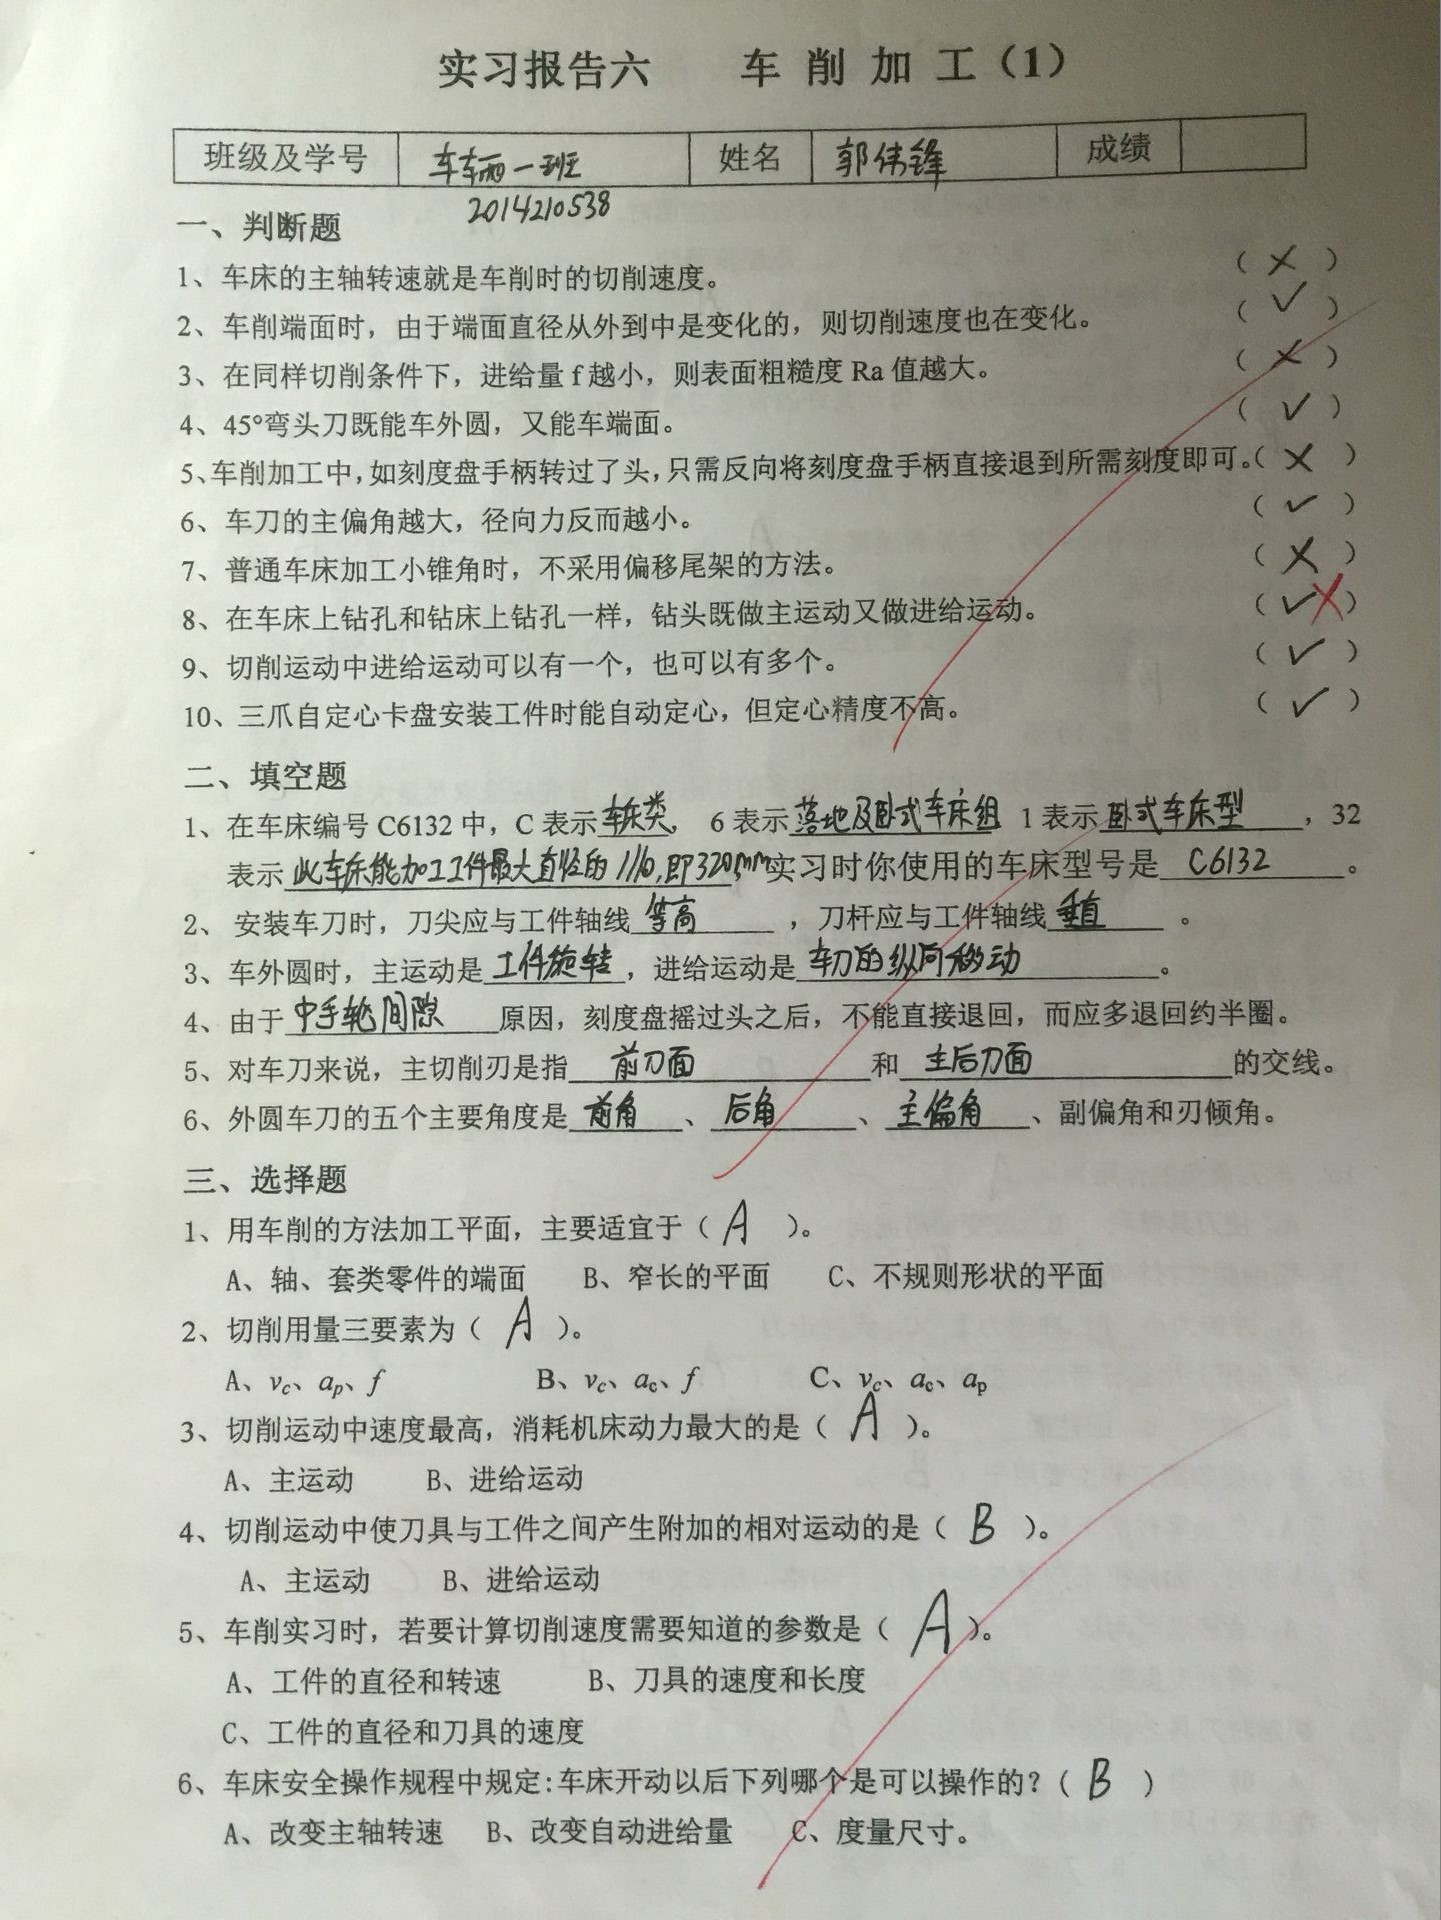 实习报告六 车削加工（1）
班级及学号 车辆一班 姓名 郭伟锋 成绩
2014210538
一、判断题
1、车床的主轴转速就是车削时的切削速度。（×）
2、车削端面时，由于端面直径从外到中是变化的，则切削速度也在变化。（✓）
3、在同样切削条件下，进给量f越小，则表面粗糙度Ra值越大。（×）
4、45°弯头刀既能车外圆，又能车端面。（✓）
5、车削加工中，如刻度盘手柄转过了头，只需反向将刻度盘手柄直接退到所需刻度即可。（×）
6、车刀的主偏角越大，径向力反而越小。（✓）
7、普通车床加工小锥角时，不采用偏移尾架的方法。（×）
8、在车床上钻孔和钻床上钻孔一样，钻头既做主运动又做进给运动。（✓×）
9、切削运动中进给运动可以有一个，也可以有多个。（✓）
10、三爪自定心卡盘安装工件时能自动定心，但定心精度不高。（✓）
二、填空题
1、在车床编号C6132中，C表示车床类，6表示落地及卧式车床组 1表示卧式车床型，32
表示此车床能加工工件最大直径的1/10,即320mm实习时你使用的车床型号是C6132。
2、安装车刀时，刀尖应与工件轴线等高，刀杆应与工件轴线垂直。
3、车外圆时，主运动是工件旋转，进给运动是车刀的纵向移动。
4、由于中手轮间隙原因，刻度盘摇过头之后，不能直接退回，而应多退回约半圈。
5、对车刀来说，主切削刃是指前刀面和主后刀面的交线。
6、外圆车刀的五个主要角度是前角、后角、主偏角、副偏角和刃倾角。
三、选择题
1、用车削的方法加工平面，主要适宜于（A）。
A、轴、套类零件的端面 B、窄长的平面 C、不规则形状的平面
2、切削用量三要素为（A）。
A、vc、ap、f B、vc、ac、f C、vc、ac、ap
3、切削运动中速度最高，消耗机床动力最大的是（A）。
A、主运动 B、进给运动
4、切削运动中使刀具与工件之间产生附加的相对运动的是（B）。
A、主运动 B、进给运动
5、车削实习时，若要计算切削速度需要知道的参数是（A）。
A、工件的直径和转速 B、刀具的速度和长度
C、工件的直径和刀具的速度
6、车床安全操作规程中规定:车床开动以后下列哪个是可以操作的?（B）
A、改变主轴转速 B、改变自动进给量 C、度量尺寸。